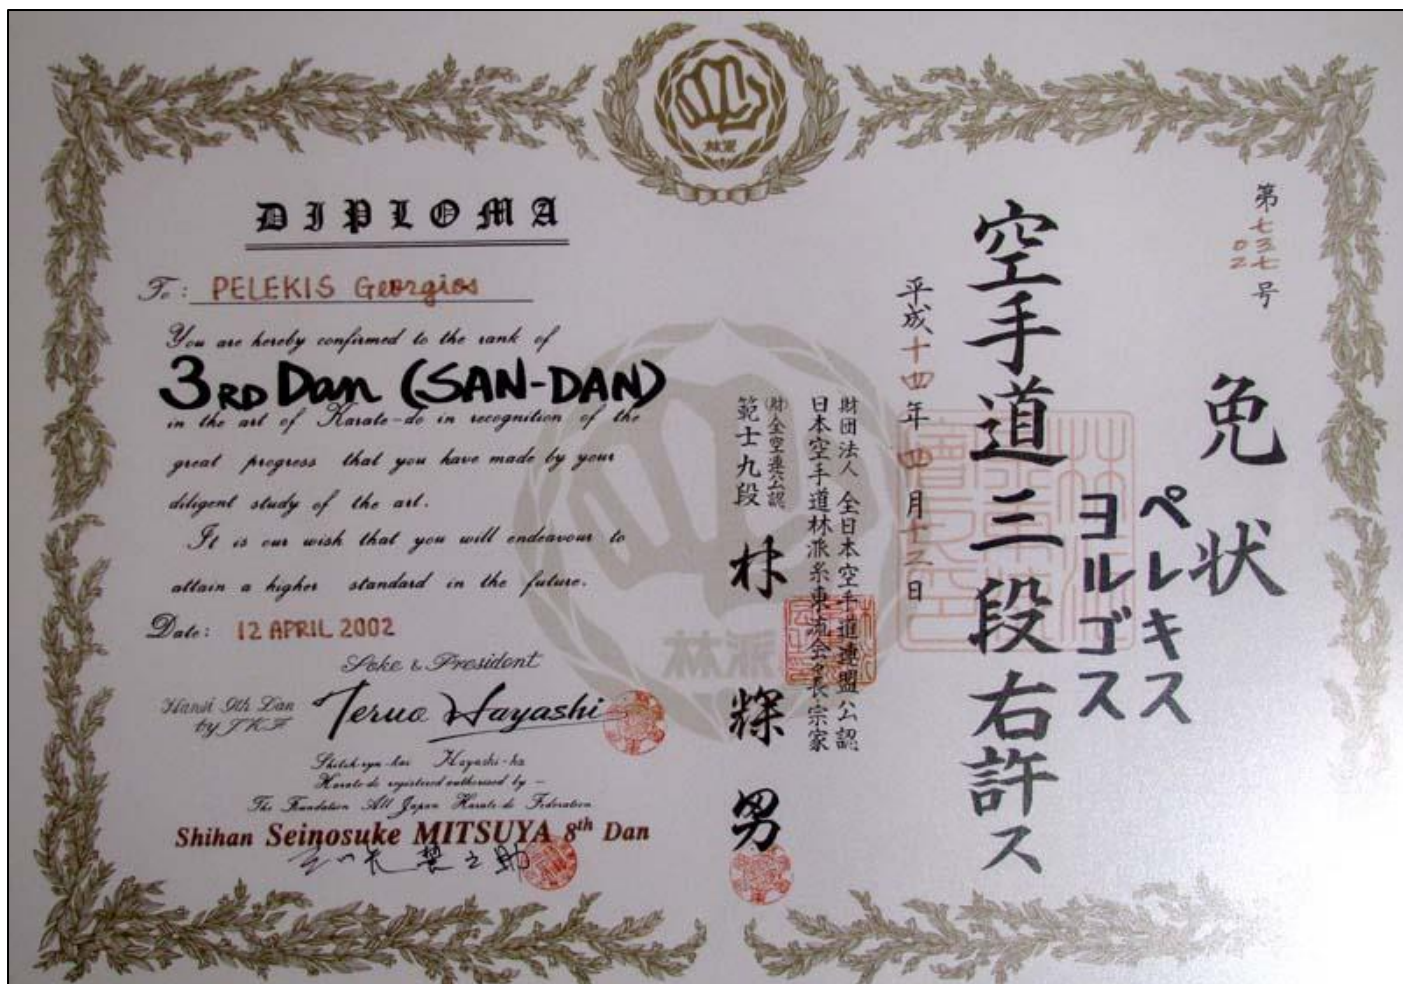 林派
DIPLOMA
To: PELEKIS Georgios
You are hereby confirmed to the rank of
3RD Dan (SAN-DAN)
in the art of Karate-do in recognition of the
great progress that you have made by your
diligent study of the art.
It is our wish that you will endeavour to
attain a higher standard in the future.
Date: 12 APRIL 2002
Soke & President
Hanshi 9th Dan
by JKF
Teruo Hayashi
Shitoh-ryu-kai Hayashi-ha
Karate-do registered authorized by —
The Fundation All Japan Karate-do Federation
Shihan Seinosuke MITSUYA 8th Dan
免状
ペレキス
ヨルゴス
空手道三段右許ス
平成十四年四月十二日
財団法人 全日本空手道連盟公認
日本空手道林派糸東流会会長宗家
(財)全空連公認
範士九段
林 輝 男
林派